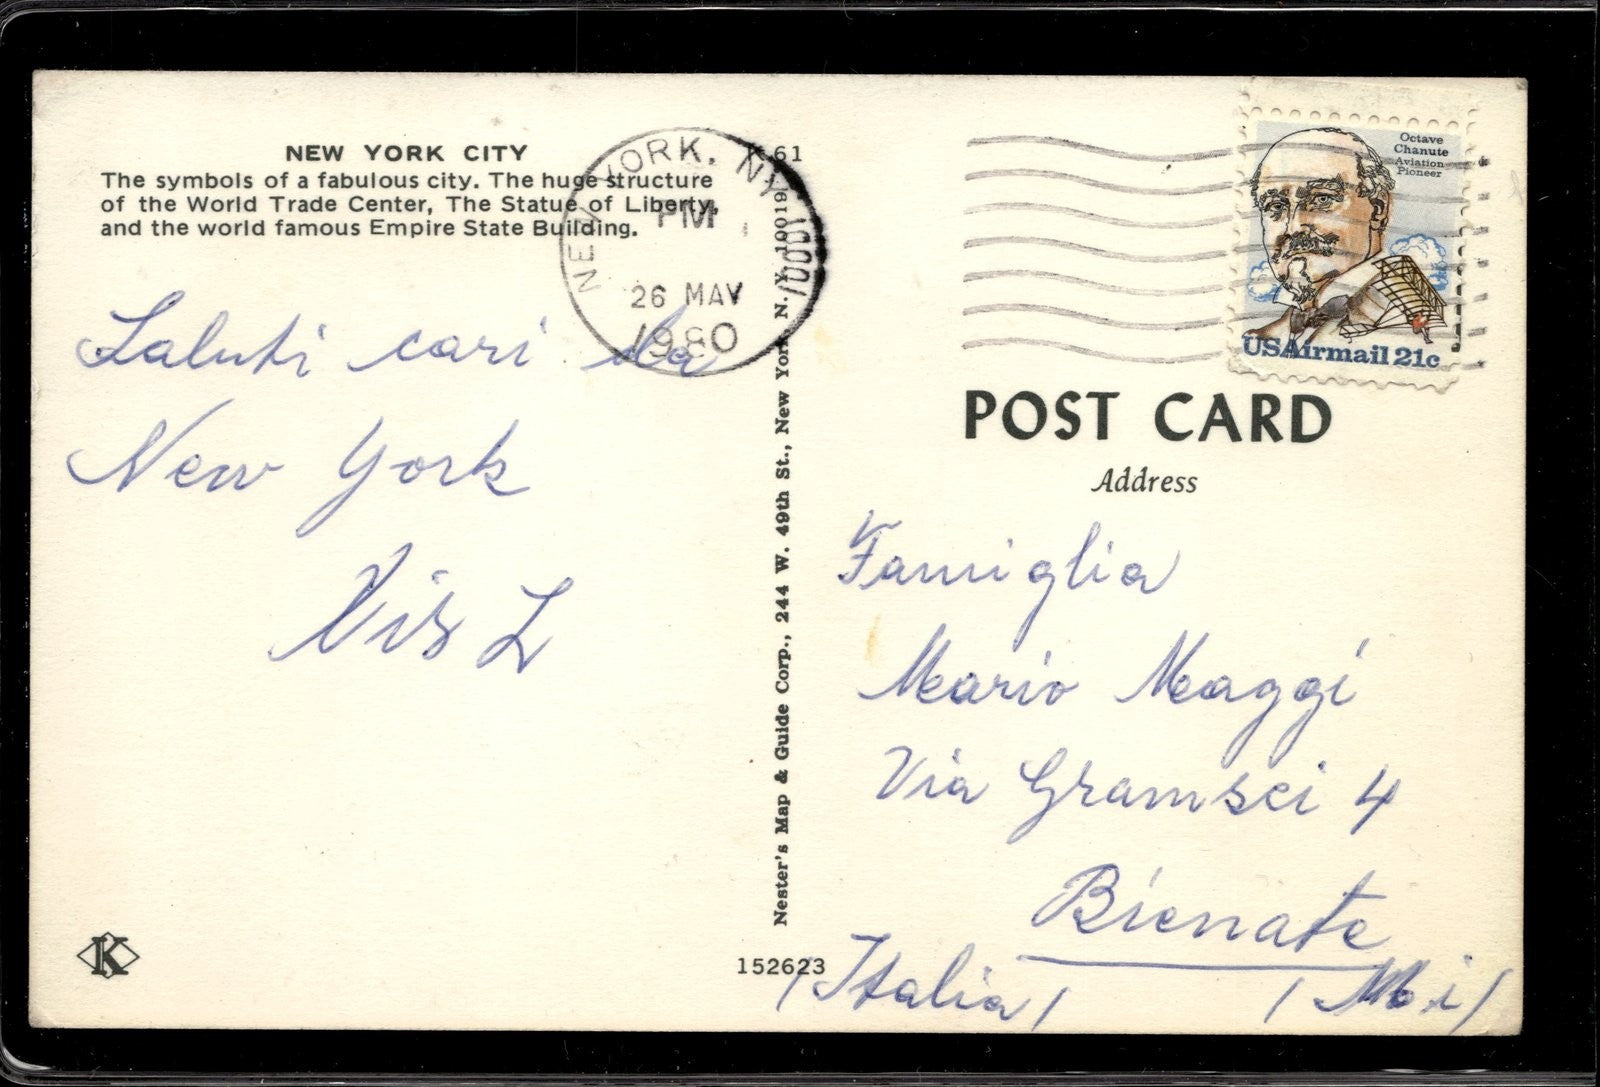 NEW YORK CITY
The symbols of a fabulous city. The huge structure
of the World Trade Center, The Statue of Liberty,
and the world famous Empire State Building.
Saluti cari da
New York
K
152623
61
Nester's Map & Guide Corp., 244 W. 49th St., New York, N. Y. 10019
NEW YORK, NY 10001
PM
26 MAY
1980
Octave
Chanute
Aviation
Pioneer
USAirmail 21c
POST CARD
Address
Famiglia
Mario Maggi
Via Gramsci 4
Bienate
(Italia) (Mi)